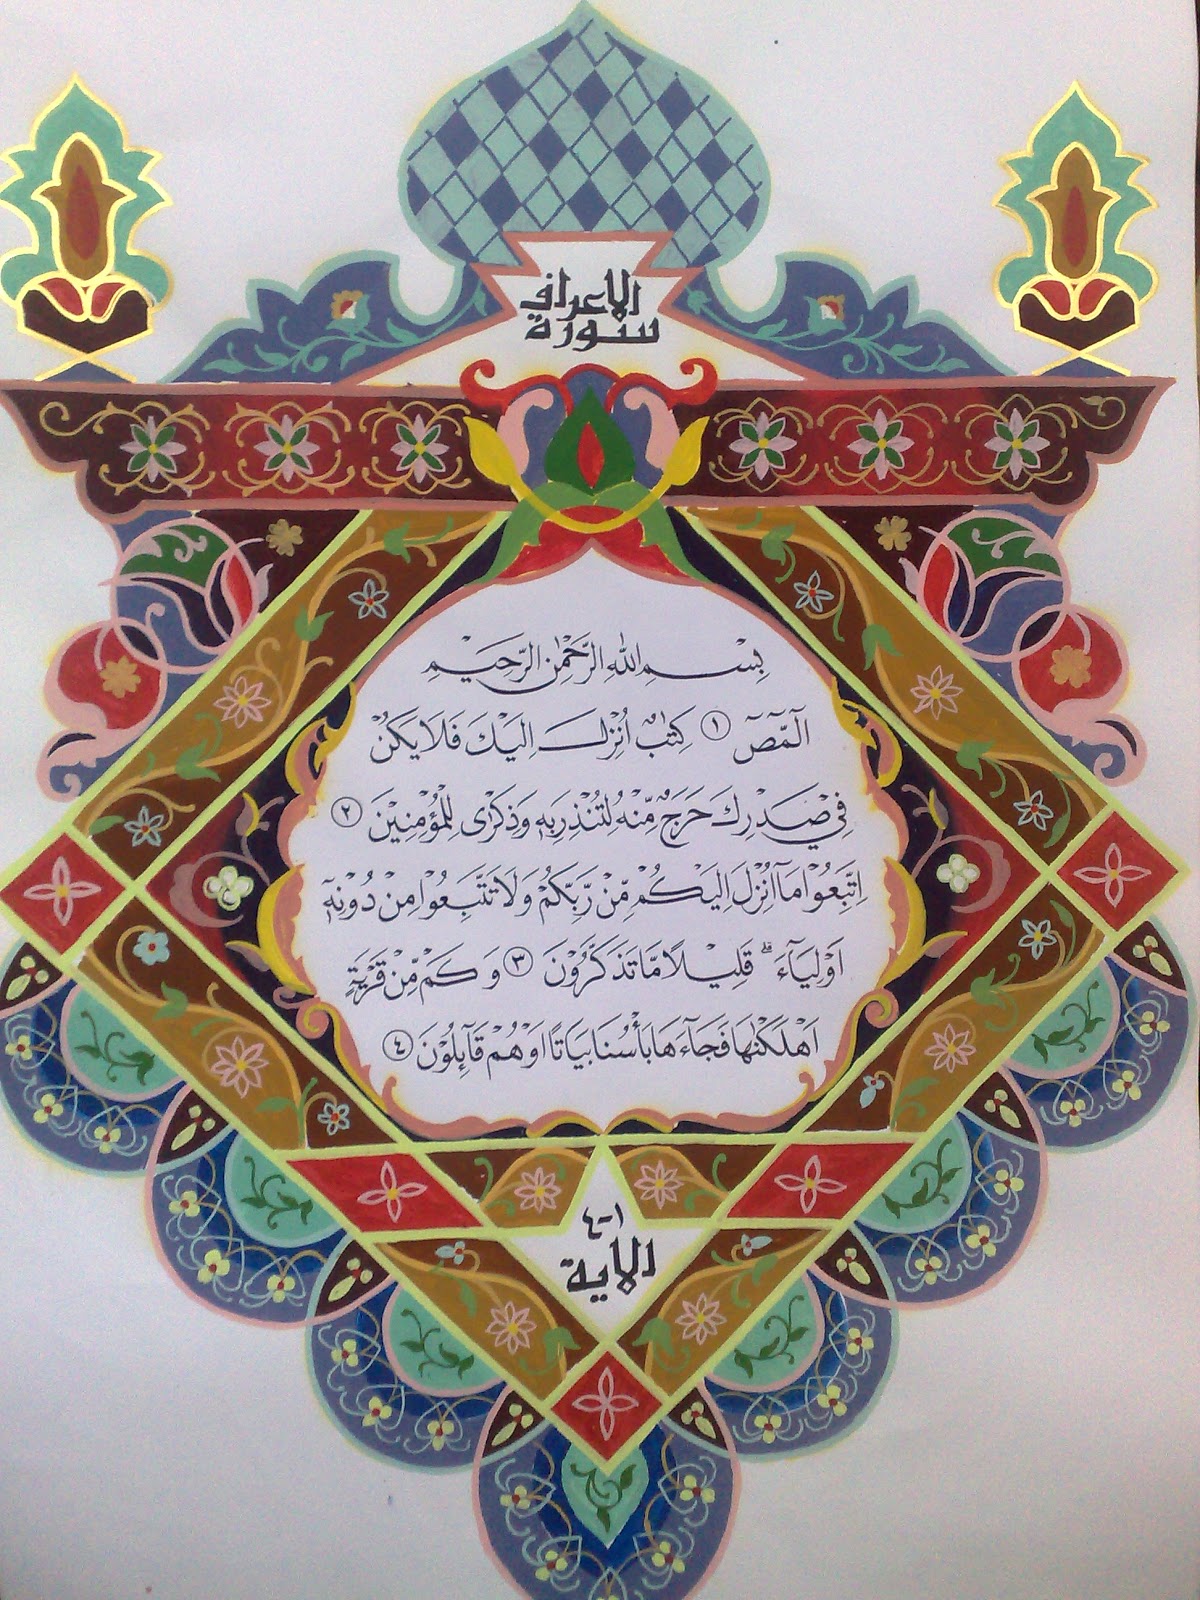 سورة
الاعراف
بِسْمِ اللّٰهِ الرَّحْمٰنِ الرَّحِيْمِ
الۤمّۤصۤ ١ كِتٰبٌ اُنْزِلَ اِلَيْكَ فَلَا يَكُنْ
فِيْ صَدْرِكَ حَرَجٌ مِّنْهُ لِتُنْذِرَ بِهٖ وَذِكْرٰى لِلْمُؤْمِنِيْنَ ٢
اِتَّبِعُوْا مَآ اُنْزِلَ اِلَيْكُمْ مِّنْ رَّبِّكُمْ وَلَا تَتَّبِعُوْا مِنْ دُوْنِهٖٓ
اَوْلِيَآءَ ۗ قَلِيْلًا مَّا تَذَكَّرُوْنَ ٣ وَكَمْ مِّنْ قَرْيَةٍ
اَهْلَكْنٰهَا فَجَآءَهَا بَأْسُنَا بَيَاتًا اَوْ هُمْ قَآىِٕلُوْنَ ٤
١-٤
الاية